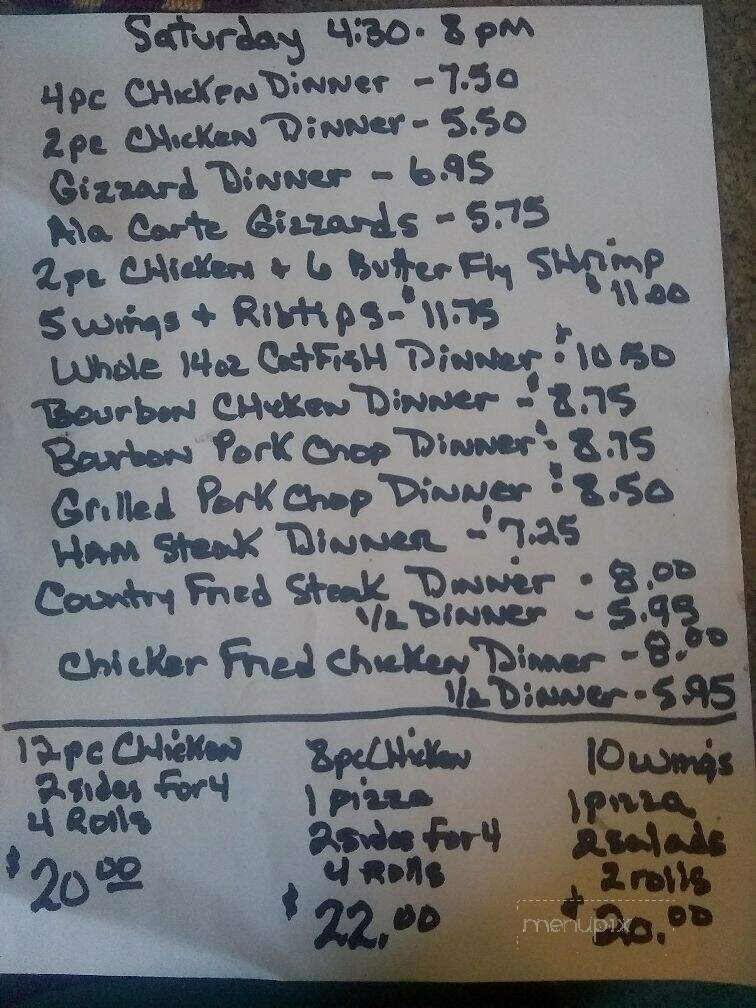 Saturday 4:30 - 8 pm
4pc Chicken Dinner - 7.50
2pc Chicken Dinner - 5.50
Gizzard Dinner - 6.95
Ala Carte Gizzards - 5.75
2pc Chicken + 6 Butter Fly Shrimp
$11.00
5 wings + Ribtips - $11.75
Whole 14oz CatFish Dinner - $10.50
Bourbon Chicken Dinner - $8.75
Bourbon Pork Chop Dinner - $8.75
Grilled Pork Chop Dinner - $8.50
Ham Steak Dinner - $7.25
Country Fried Steak Dinner - 8.00
1/2 Dinner - 5.95
Chicken Fried Chicken Dinner - 8.00
1/2 Dinner - 5.95
12pc Chicken
2 sides for 4
4 Rolls
$20.00
8pc Chicken
1 pizza
2 sides for 4
4 Rolls
$22.00
10 wings
1 pizza
2 salads
2 rolls
$20.00
menupix